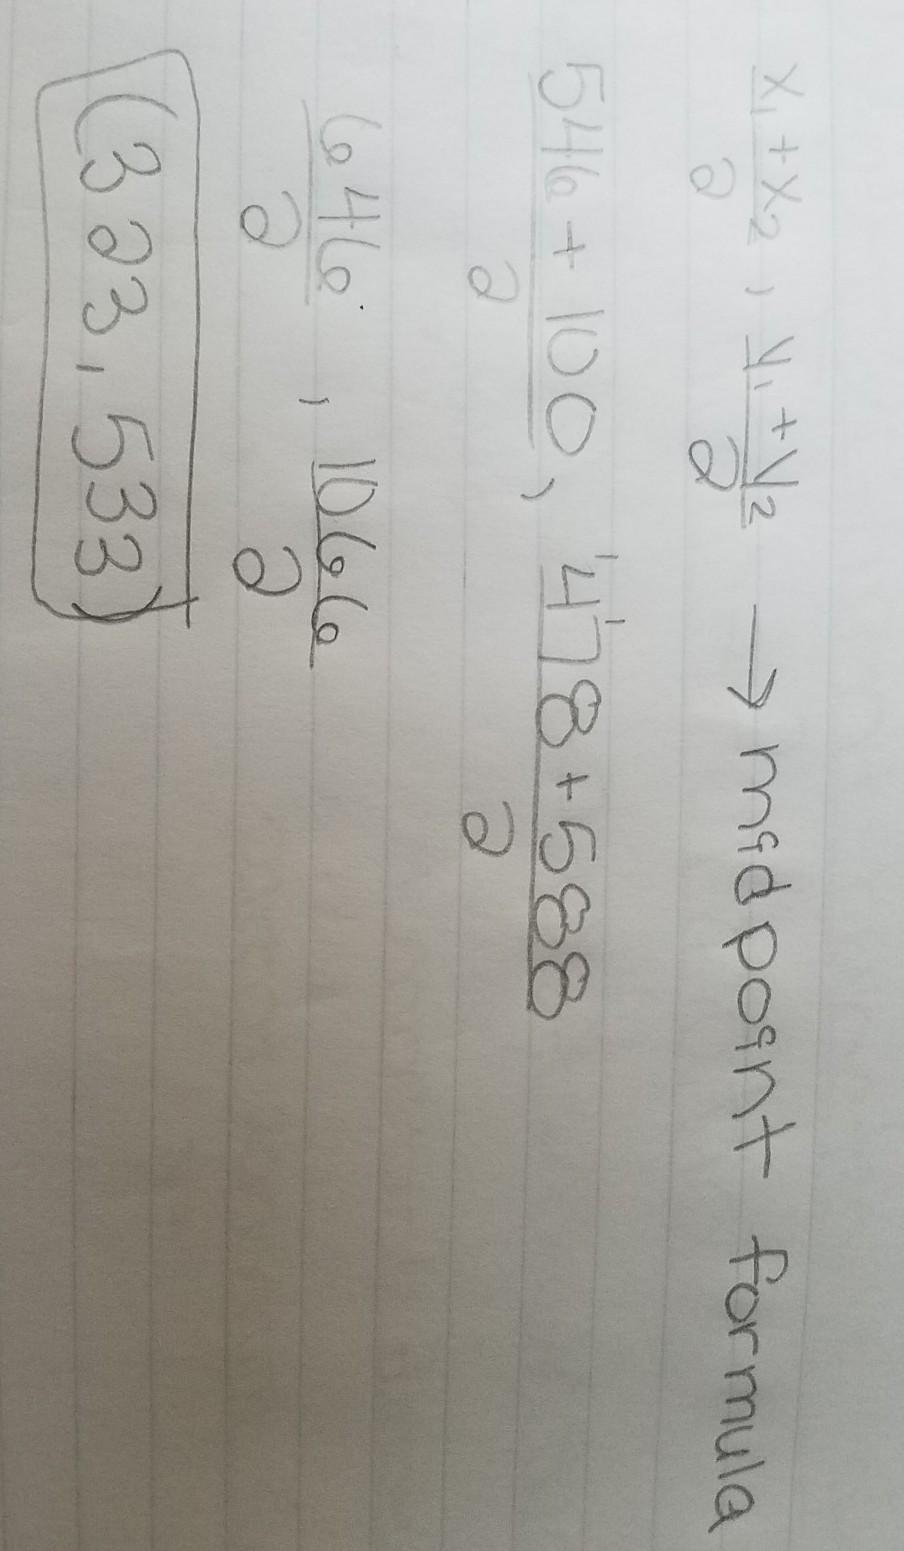 x₁+x₂/2, y₁+y₂/2 → midpoint formula
546+100/2, 478+588/2
646/2, 1066/2
(323, 533)